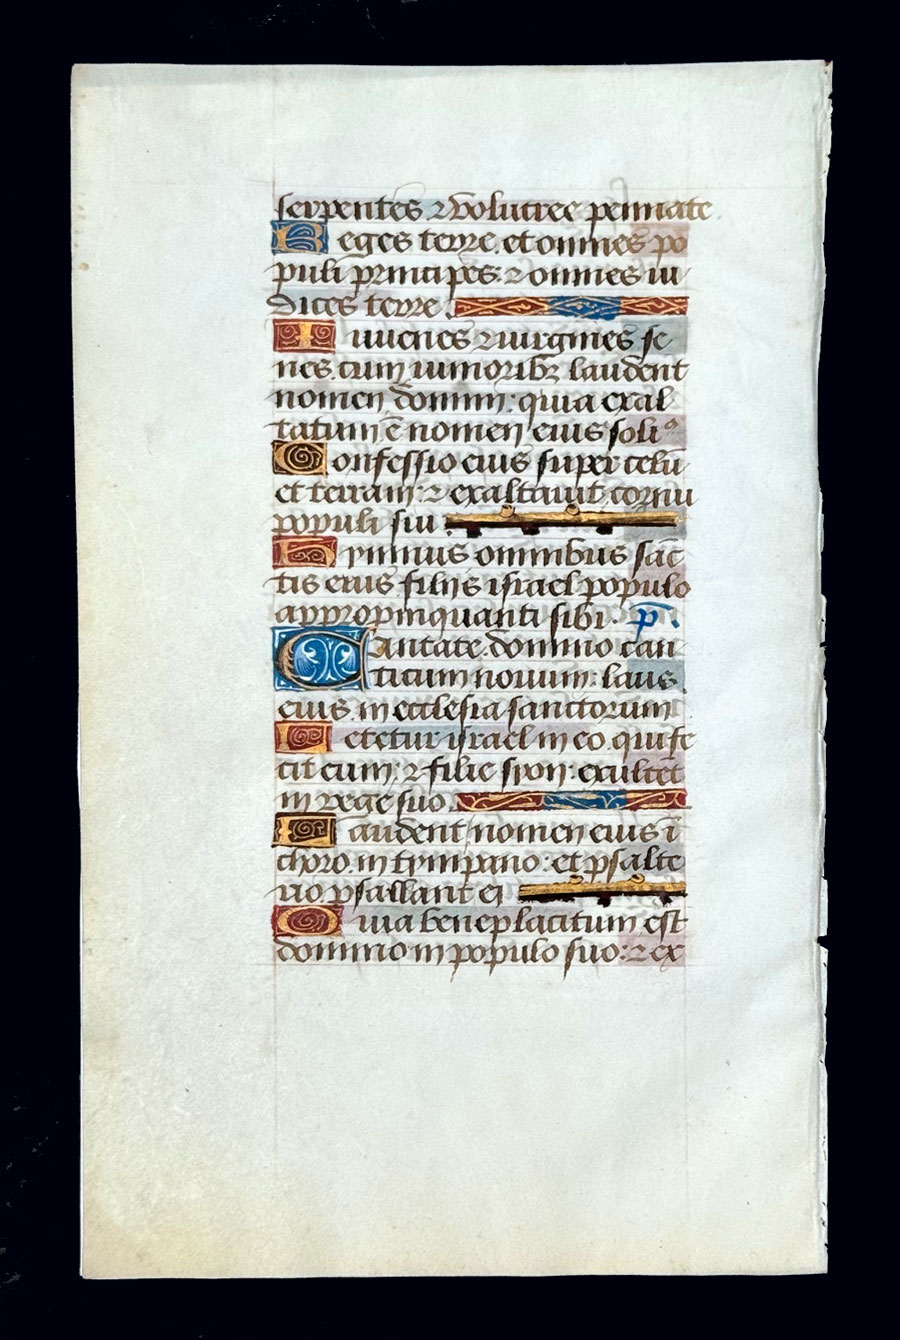 serpentes ⁊ volucres pennate.
Reges terre. et omnes po
puli principes ⁊ omnes iu
dices terre.
Iuuenes ⁊ uirgines se
nes cum iunioribꝫ laudent
nomen domini: quia exal
tatum ē nomen eius soliꝰ
Confessio eius super celū
et terram: ⁊ exaltauit cornu
populi sui.
Hymnus omnibus sāc
tis eius filijs israel populo
appropinquanti sibi. p̄.
Cantate domino can
ticum nouum: laus
eius in ecclesia sanctorum
Letetur israel in eo qui fe
cit eum: ⁊ filie syon exultēt
in rege suo.
Laudent nomen eius ī
choro. in tympano: et psalte
rio psallant ei
Quia beneplacitum est
domino in populo suo: ⁊ ex